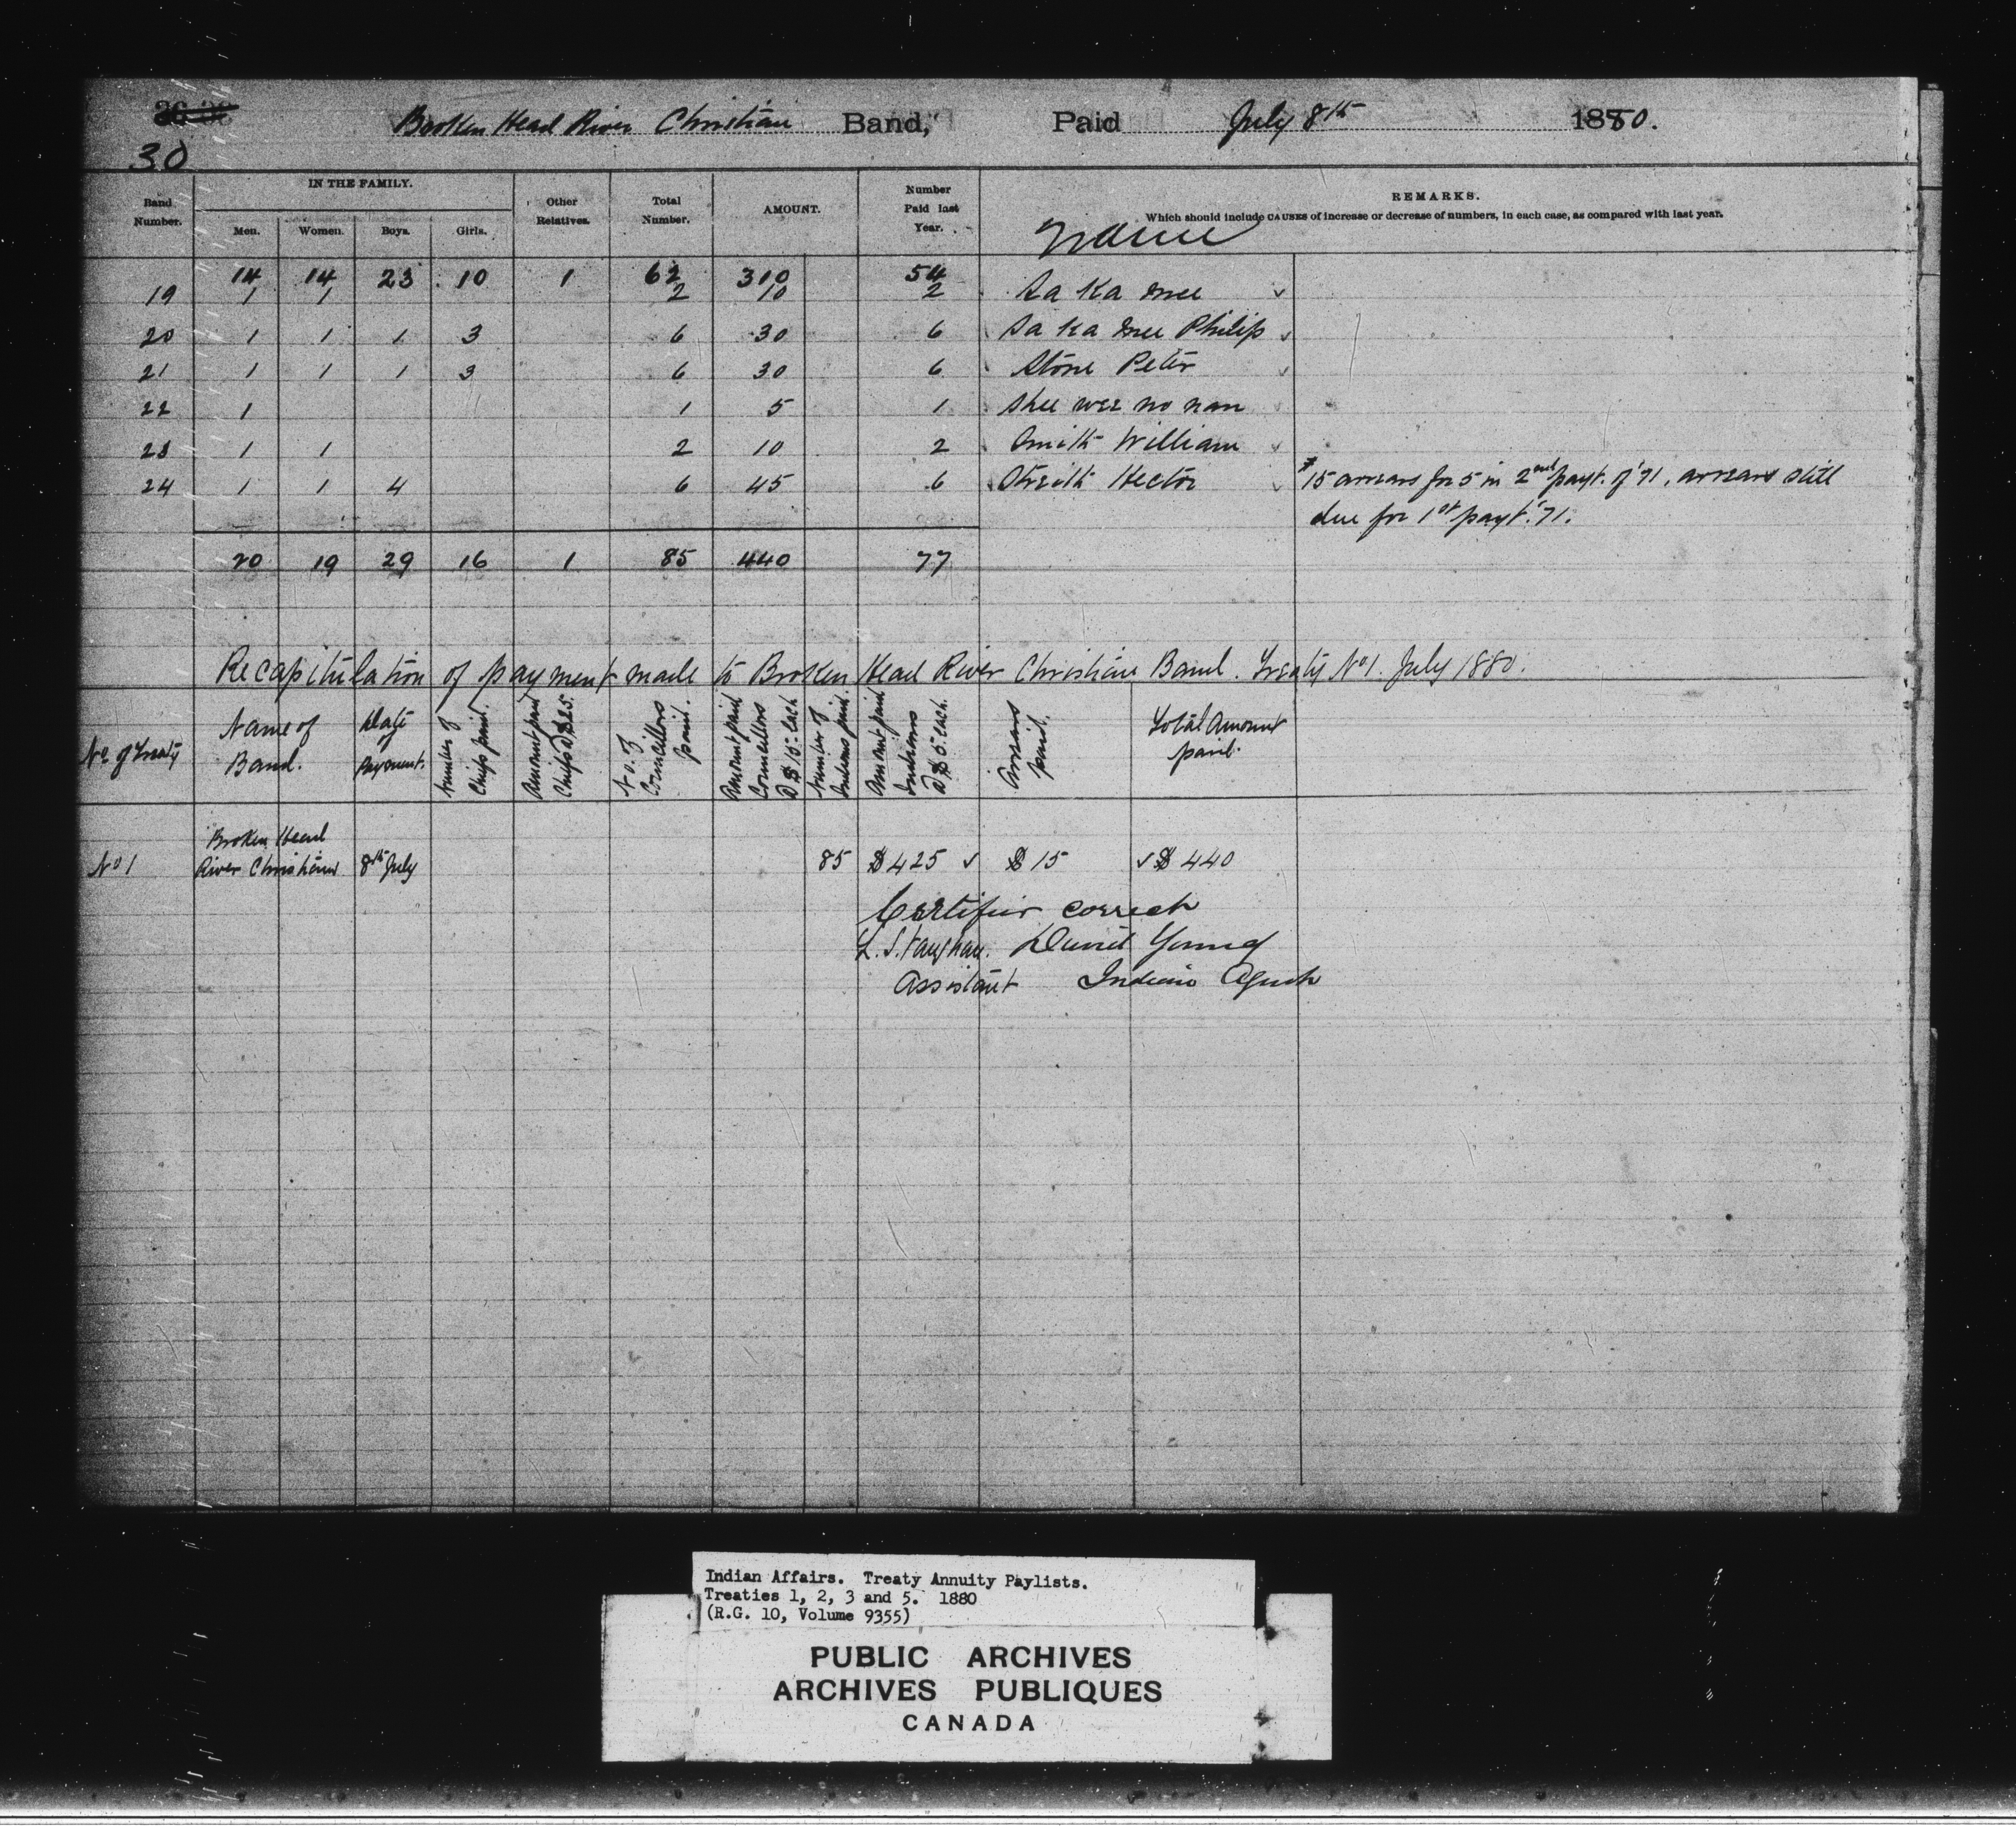 30
Broken Head River Christian Band, Paid July 8th 1880.
IN THE FAMILY.
Band Number. Men. Women. Boys. Girls. Other Relatives. Total Number. AMOUNT. Number Paid last Year. Name REMARKS.
Which should include CAUSES of increase or decrease of numbers, in each case, as compared with last year.
14 14 23 10 1 62 310 54
19 1 1 2 10 2 Sa Ka mee
20 1 1 1 3 6 30 6 Sa Ka mee Philip
21 1 1 1 3 6 30 6 Stone Peter
22 1 1 5 1 Shee wee no nan
23 1 1 2 10 2 Smith William
24 1 1 4 6 45 6 Hector $15 arrears for 5 in 2nd payt. of '71, arrears still
due for 1st payt. '71.
20 19 29 16 1 85 440 77
Recapitulation of payment made to Broken Head River Christian Band. Treaty No 1. July 1880.
No. of Treaty Name of Band. Date of Payment. Number of Chiefs paid. Amount paid Chiefs @ $25. No. of Councillors paid. Amount paid Councillors @ $15 each Number of Indians paid. Amount paid Indians @ $5 each. Arrears paid. Total Amount paid.
Broken Head
No 1 River Christians 8th July 85 $425 ✓ $15 ✓ $440
Certified correct
L. S. Vaughan. David Young
Assistant Indian Agent
Indian Affairs. Treaty Annuity Paylists.
Treaties 1, 2, 3 and 5. 1880
(R.G. 10, Volume 9355)
PUBLIC ARCHIVES
ARCHIVES PUBLIQUES
CANADA